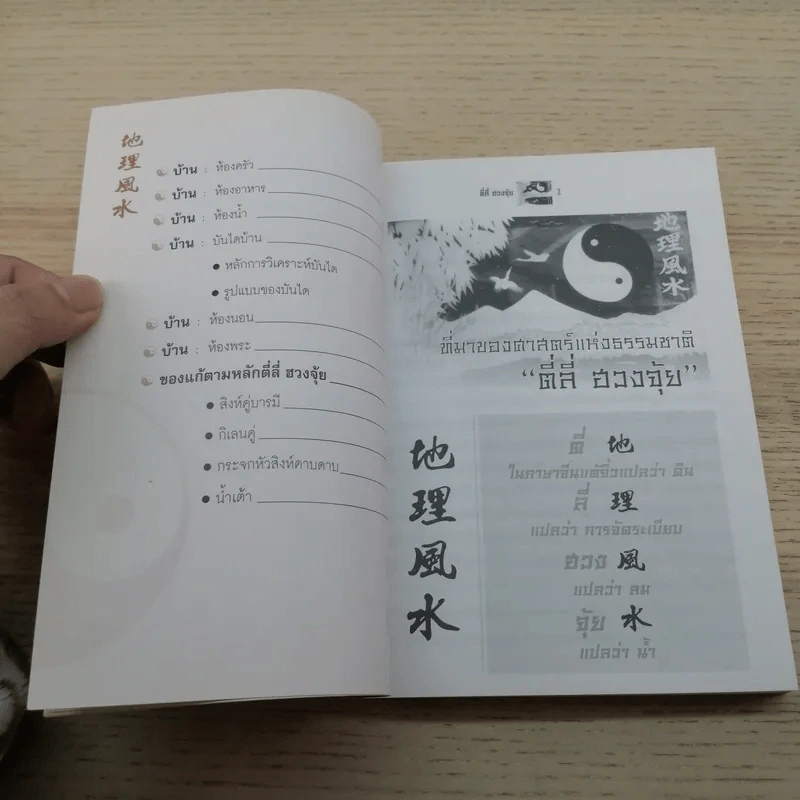 地理風水
บ้าน : ห้องครัว
บ้าน : ห้องอาหาร
บ้าน : ห้องน้ำ
บ้าน : บันไดบ้าน
• หลักการวิเคราะห์บันได
• รูปแบบของบันได
บ้าน : ห้องนอน
บ้าน : ห้องพระ
ของแก้ตามหลักตี่ลี่ ฮวงจุ้ย
• สิงห์คู่บารมี
• กิเลนคู่
• กระจกหัวสิงห์คาบดาบ
• น้ำเต้า
ตี่ลี่ ฮวงจุ้ย 1
地理風水
ที่มาของศาสตร์แห่งธรรมชาติ
“ตี่ลี่ ฮวงจุ้ย”
地理風水
ตี่ 地
ในภาษาจีนแต้จิ๋วแปลว่า ดิน
ลี่ 理
แปลว่า การจัดระเบียบ
ฮวง 風
แปลว่า ลม
จุ้ย 水
แปลว่า น้ำ